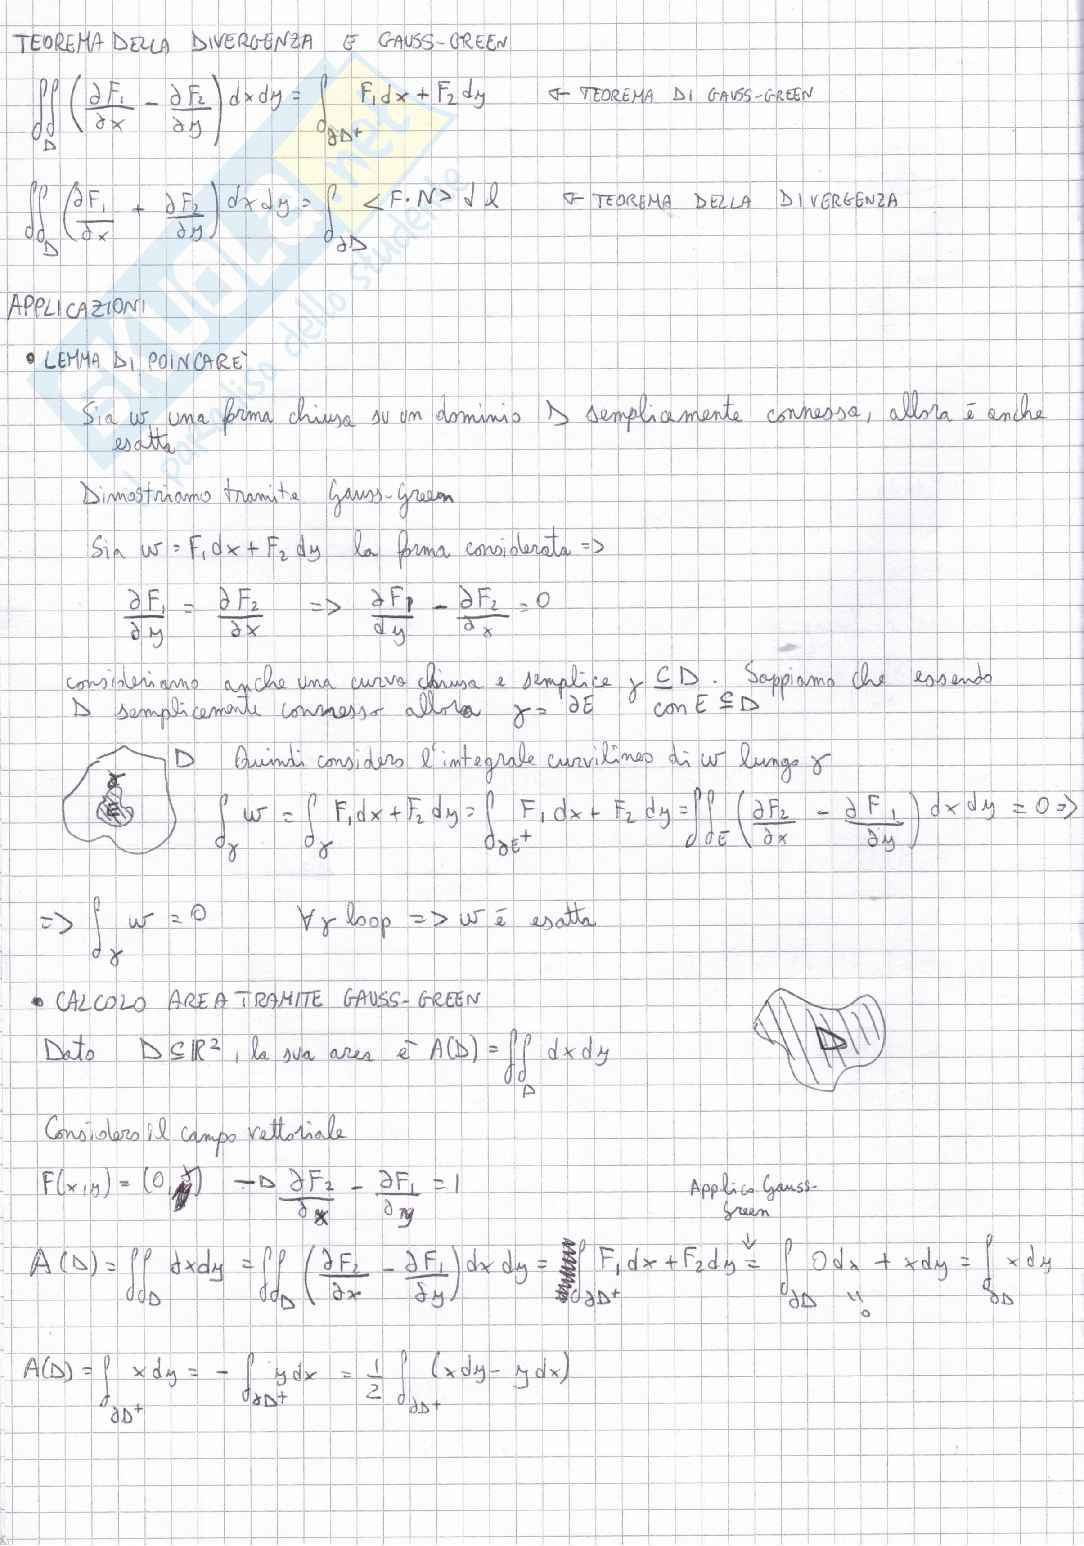 TEOREMA DELLA DIVERGENZA E GAUSS-GREEN
∬_D (∂F₁/∂x - ∂F₂/∂y) dxdy = ∫_∂D+ F₁dx + F₂dy ← TEOREMA DI GAUSS-GREEN
∬_D (∂F₁/∂x + ∂F₂/∂y) dxdy = ∫_∂D <F·N> dl ← TEOREMA DELLA DIVERGENZA
APPLICAZIONI
• LEMMA DI POINCARE'
Sia w una forma chiusa su un dominio D semplicemente connessa, allora è anche
esatta
Dimostriamo tramite Gauss-Green
Sia w = F₁dx + F₂dy la forma considerata =>
∂F₁/∂y = ∂F₂/∂x => ∂F₁/∂y - ∂F₂/∂x = 0
consideriamo anche una curva chiusa e semplice γ ⊆ D. Sappiamo che essendo
D semplicemente connesso allora γ = ∂E con E ⊆ D
D Quindi considero l'integrale curvilineo di w lungo γ
γ
E
∫_γ w = ∫_γ F₁dx + F₂dy = ∫_∂E+ F₁dx + F₂dy = ∬_E (∂F₂/∂x - ∂F₁/∂y) dxdy = 0 =>
=> ∫_γ w = 0 ∀γ loop => w è esatta
• CALCOLO AREA TRAMITE GAUSS-GREEN
Dato D ⊆ ℝ², la sua area è A(D) = ∬_D dxdy
D
Considero il campo vettoriale
F(x,y) = (0,x) → ∂F₂/∂x - ∂F₁/∂y = 1
Applico Gauss-
Green
↓
A(D) = ∬_D dxdy = ∬_D (∂F₂/∂x - ∂F₁/∂y) dxdy = ∫_∂D+ F₁dx + F₂dy = ∫_∂D 0dx + xdy = ∫_∂D xdy
A(D) = ∫_∂D+ xdy = - ∫_∂D+ ydx = 1/2 ∫_∂D+ (xdy - ydx)
SKUOLA.net
il paradiso dello studente